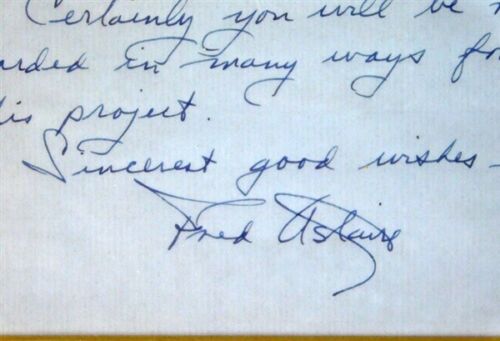 Certainly you will be
arded in many ways fo
is project.
Sincerest good wishes -
Fred Astaire